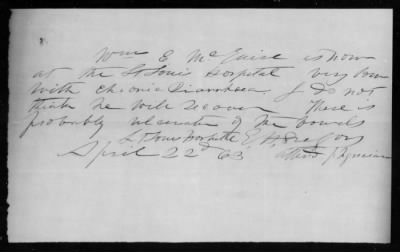 Wm E McGuire is now
at the St Louis Hospital very low
with chronic Diarrhoea. I do not
think he will recover There is
probably ulceration of the bowels
St Louis Hospital E. H. Gregory
April 22d 63 Attend Physician